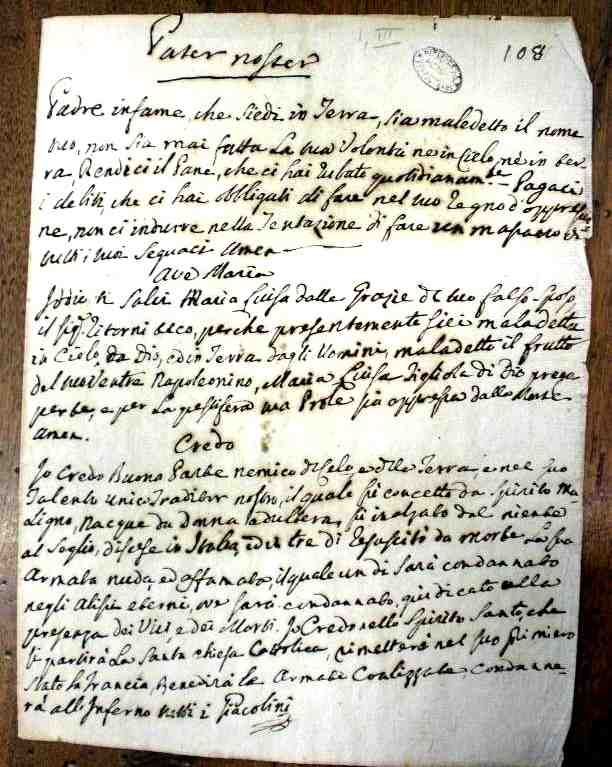 108
Pater noster
Padre infame, che siedi in Terra, sia maledetto il nome
tuo, non sia mai fatta La tua Volontà ne in Cielo, nè in ter
ra, Rendici il Pane, che ci hai rubato quotidianam.te Pagaci
i debiti, che ci hai obbligati di fare nel tuo Regno d'oppressio
ne, non ci indurre nella Tentazione di fare un massacro di
tutti i tuoi Seguaci Amen
Ave Maria
Iddio ti Salvi Maria Luisa dalle Grazie di tuo falso Sposo
il Sig.r ti torni teco, perchè presentemente siei maladetta
in Cielo, da Dio, ed in Terra dagli Uomini, maladetto il frutto
del tuo Ventre Napoleonino, Maria Luisa Figliola di Dio prega
per te, e per La pestifera tua Prole sia oppressa dalla Morte
Amen.
Credo
Io Credo Buona Parte nemico di Celo, e della Terra, e nel suo
Talento unico Traditor nostro, il quale fù concetto da Spirito Ma
ligno, Nacque da Donna adultera, fù inalzato dal niente
al Soglio, discese in Italia, ed in tre dì Resuscitò da morte La sua
Armata nuda, ed affamata, il quale un dì Sarà condannato
negli Abissi eterni, ove sarà condannato, giudicato alla
presenza dei Vivi e dei Morti. Io Credo nello Spirito Santo, che
si partirà La Santa chiesa Cattolica, rimetterà nel suo primiero
Stato la Francia, Benedirà le Armate Coalizzate Condanne-
rà all'Inferno tutti i Giacobini